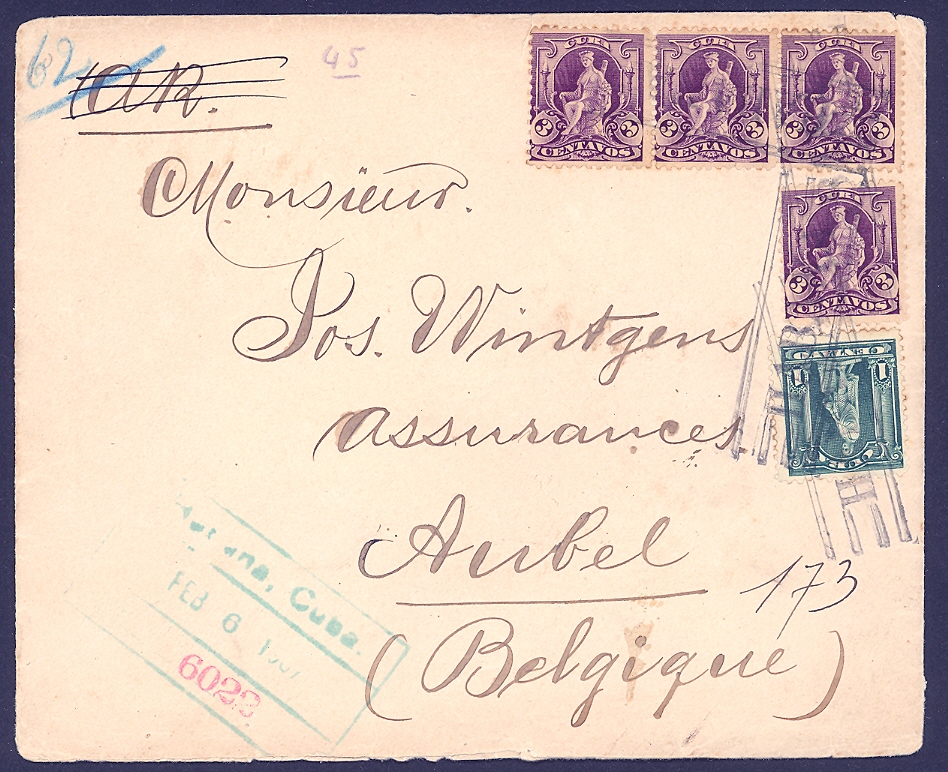 62
45
AR.
CUBA CUBA CUBA
3 3 3 3 3 3
CENTAVOS CENTAVOS CENTAVOS
Monsieur.
CUBA
3 3
CENTAVOS
Jos. Wintgens
CENTAVO
1 1
CUBA
Assurances.
Aubel
173
(Belgique)
Habana, Cuba.
FEB 6
6023